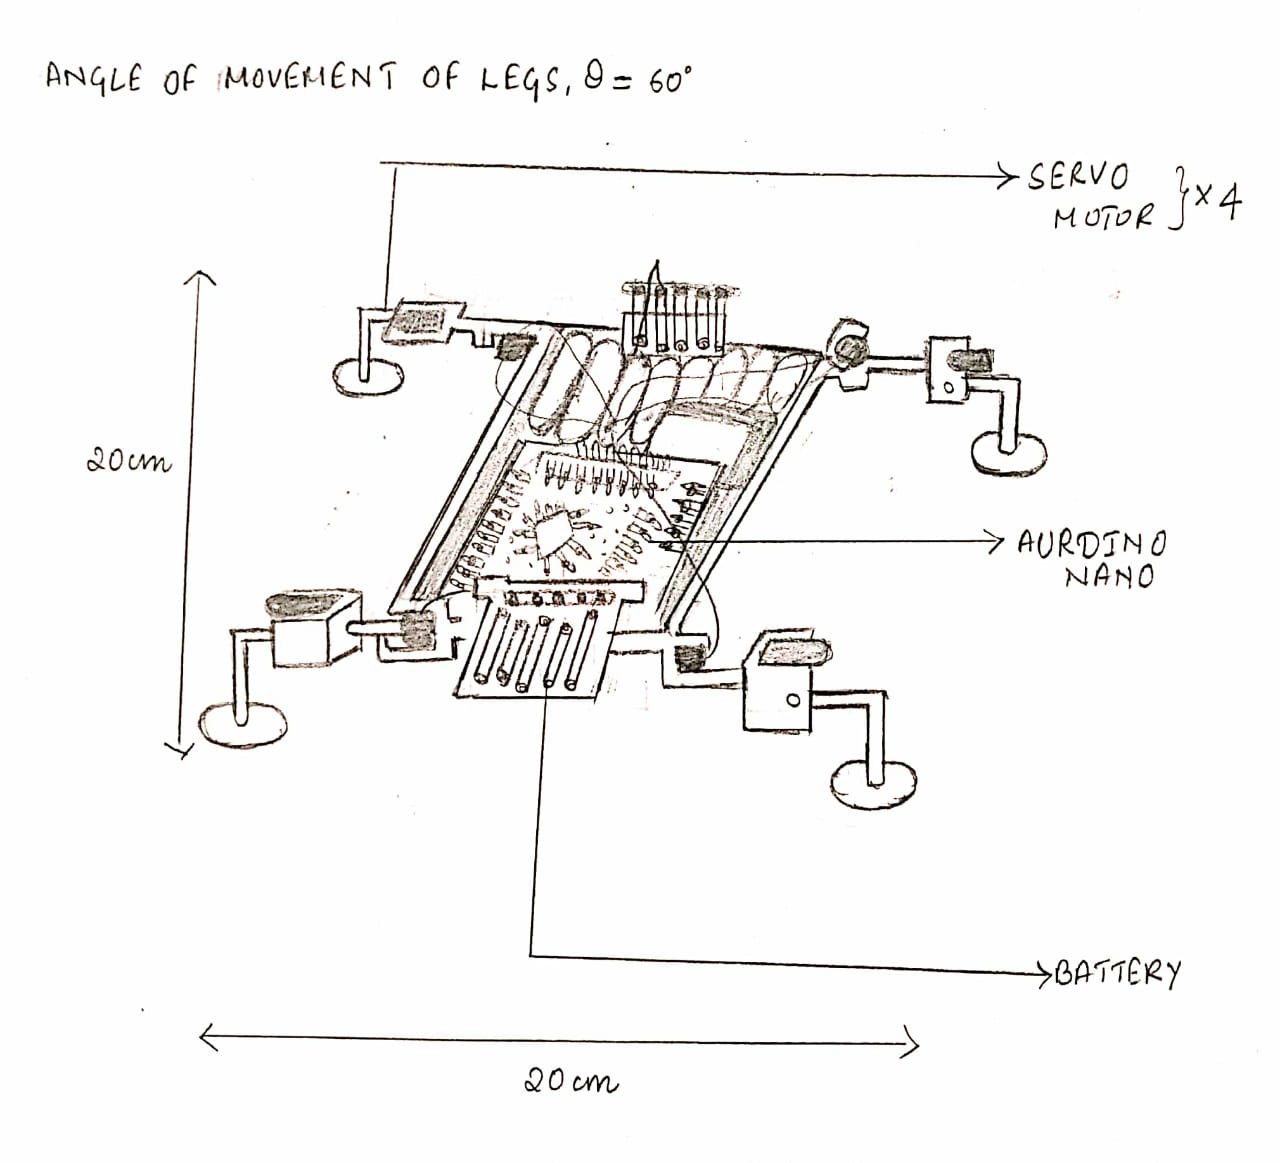 ANGLE OF MOVEMENT OF LEGS, θ = 60°
SERVO
MOTOR } × 4
20cm
AURDINO
NANO
BATTERY
20cm